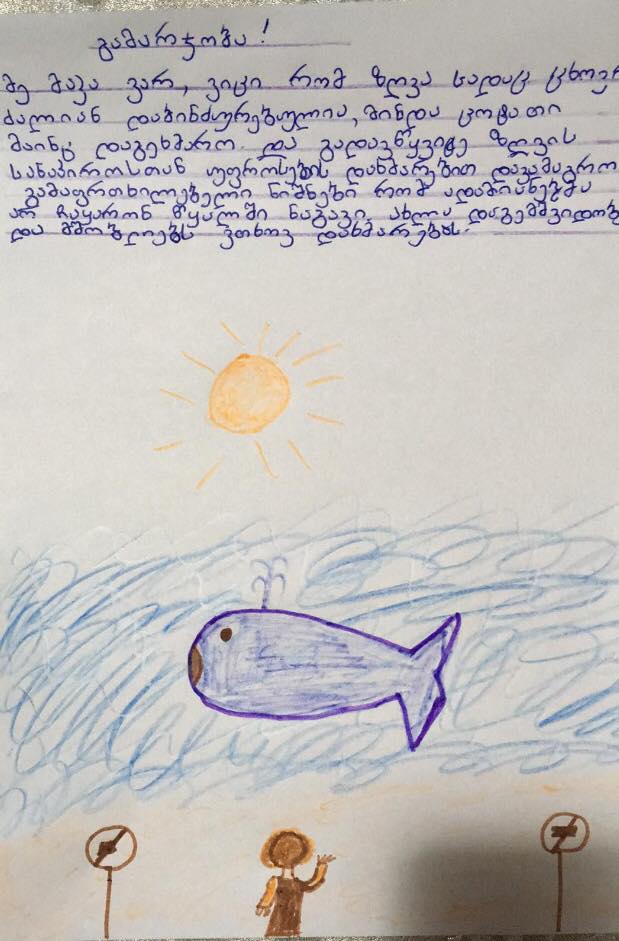 გამარჯობა!
მე მავა ვარ, ვიცი რომ ზღვა სადაც ცხოვრ
ძალიან დაბინძურებულია, მინდა ცოტათი
მაინც დაგეხმარო. და გადავწყვიტე ზღვის
სანაპიროსთან უფროსების დახმარებით დავამაგრო
გამაფრთხილებელი ნიშნები რომ ადამიანებმა
არ ჩაყარონ წყალში ნაგავი. ახლა დაგემშვიდობ
და მშობლებს ვთხოვ დახმარებას.